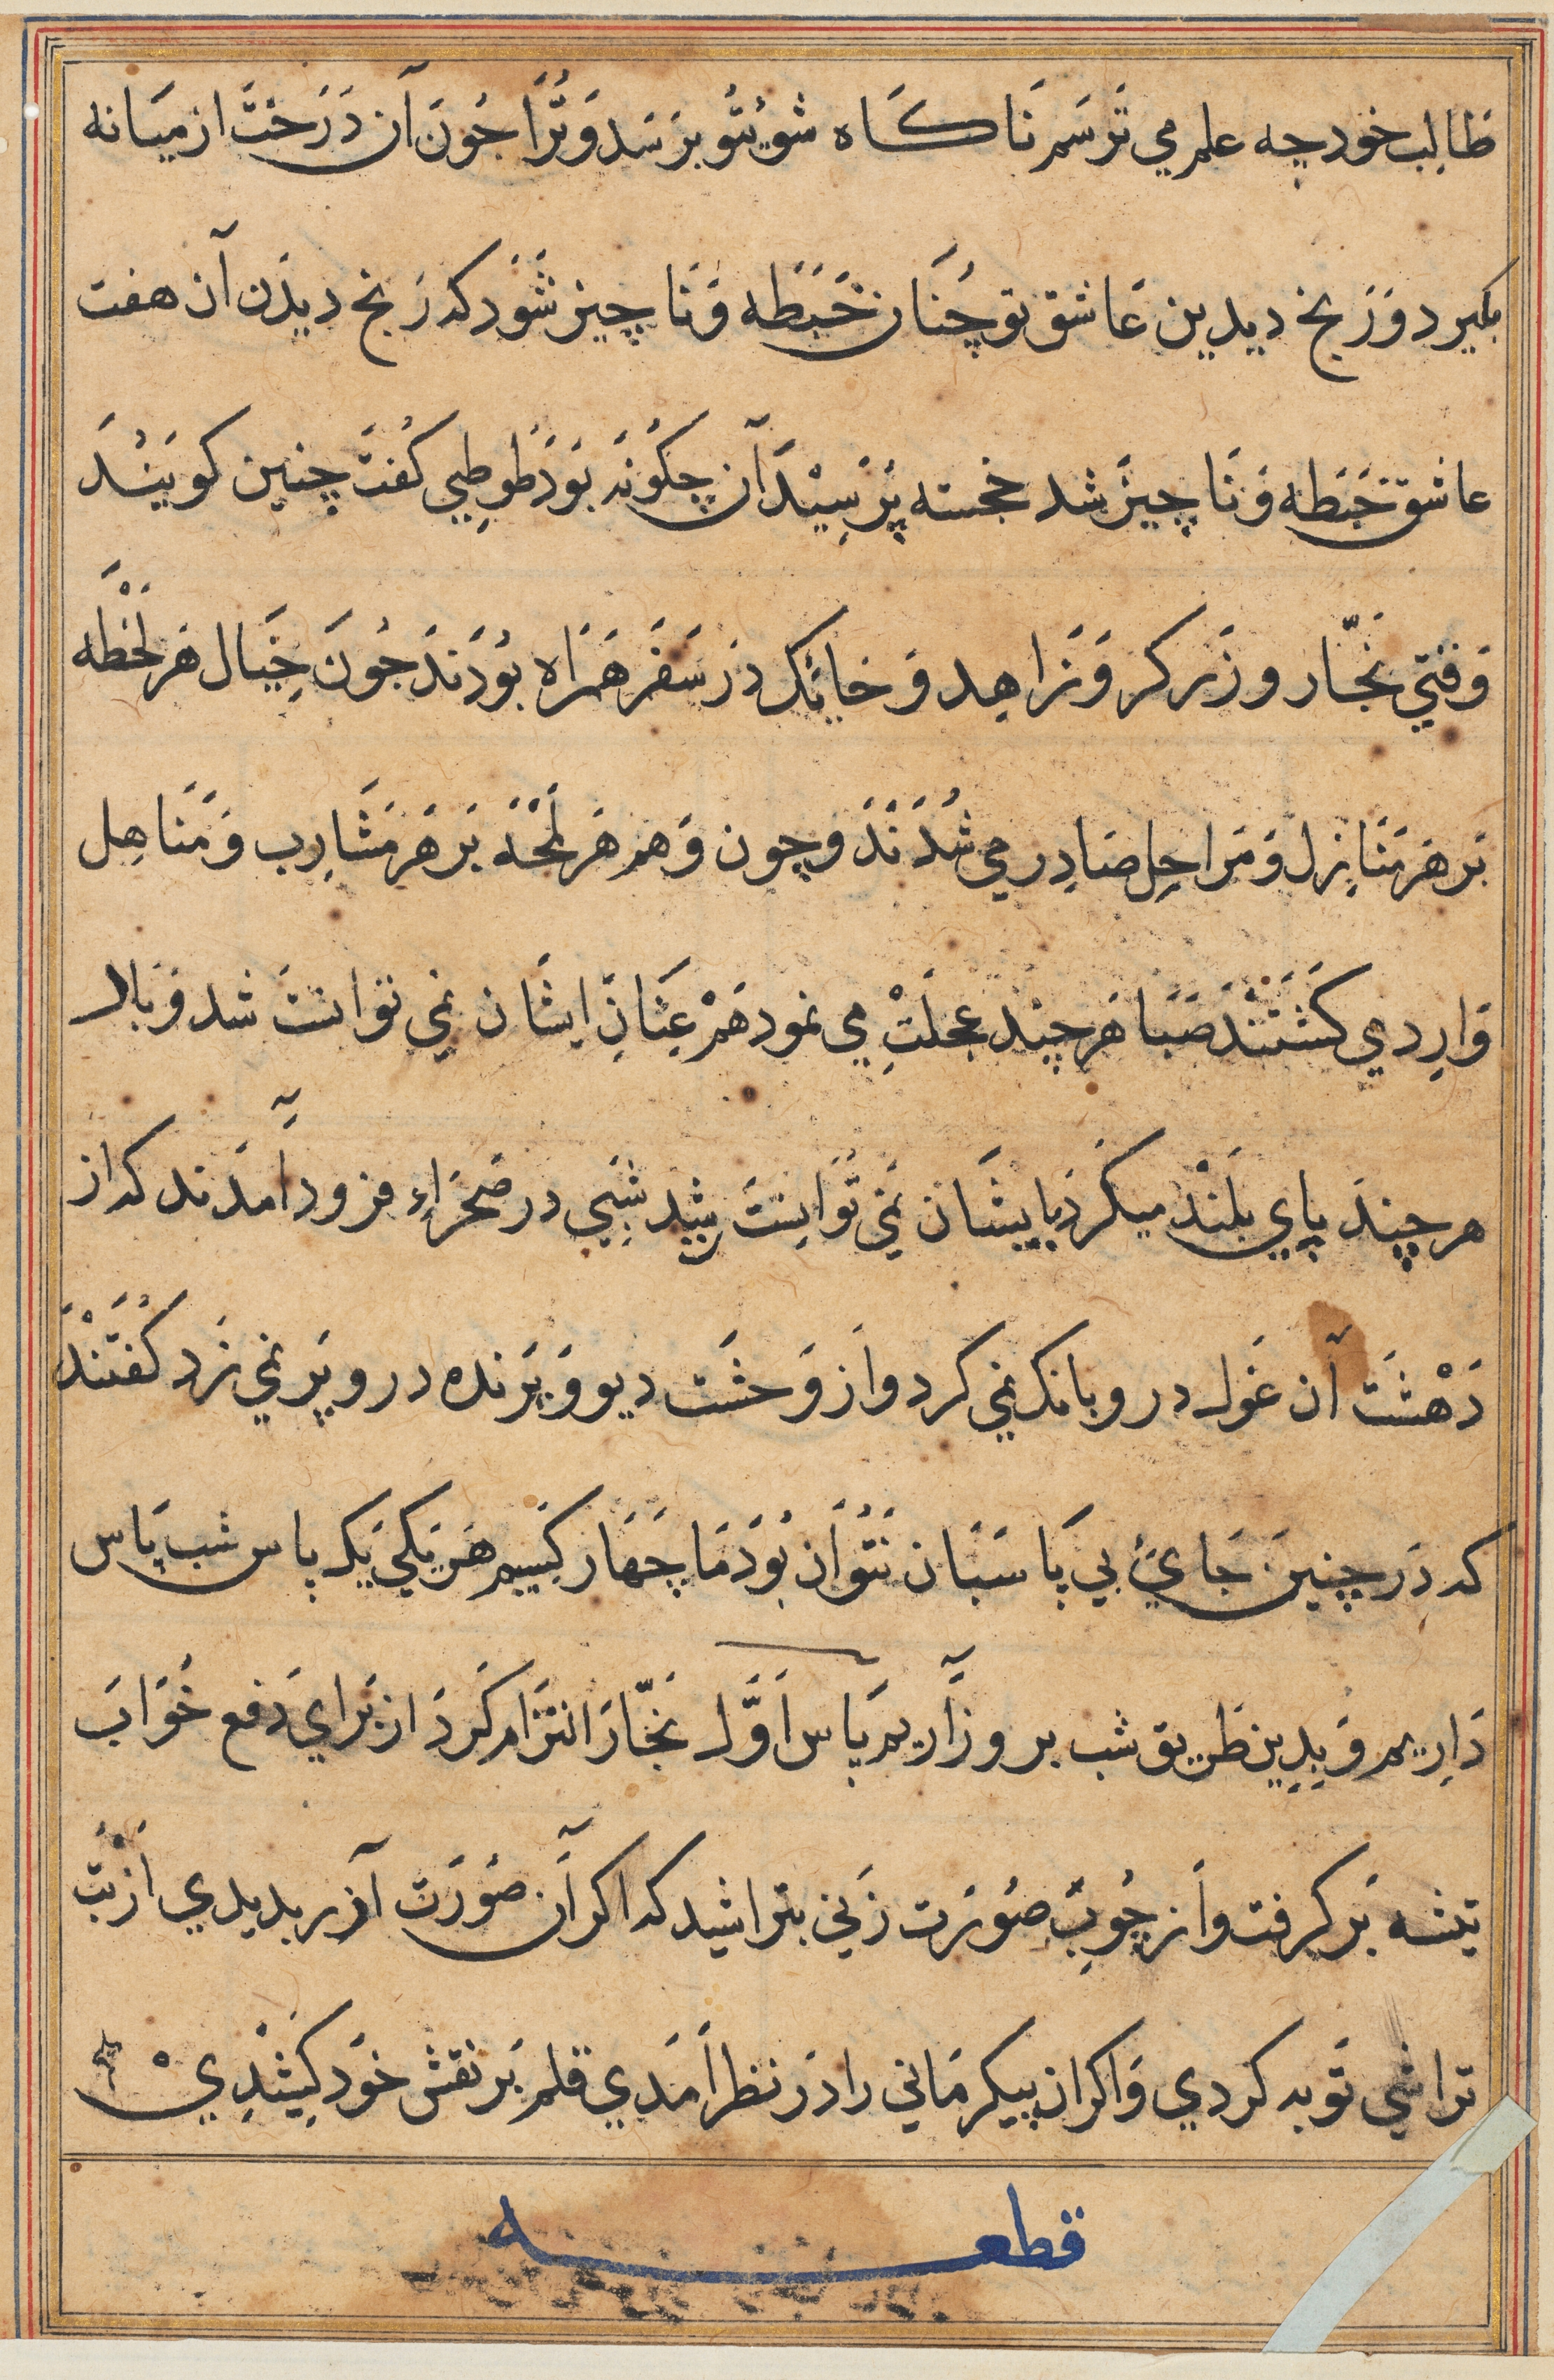 طالب خود چه علم می ترسم ناکاه شوی تو برسد و ترا جون آن درخت از میانه
بکیرد و رنج دیدین عاشق تو چنان خبطه و ناچیز شود که رنج دیدن آن هفت
عاشق خبطه و ناچیز شد خجسته پرسید آن چکونه بود طوطیی کفت چنین کویند
وقتی نجّار و زرکر و زاهد و حائک در سفر همراه بودند جون خیال هر لحظه
بر هر منازل و مراحل صادر می شدند و چون وهم هر لمحه بر هر مشارب و مناهل
وارد می کشتند صبا هر چند عجلت می نمود هم عنان ایشان نمی توانت شد و بالا
هر چند پای بلند میکرد بایشان نمی توانست رسید شبی در صحراء فرود آمدند که از
دهشت آن غول درو بانک نمی کرد و از وحشت دیو و پرنده درو پر نمی زد کفتند
که در چنین جائ بی پاسبان نتوان بود ما چهار کسیم هر یکی یک پاس شب پاس
داریم و بدین طریق شب بروز آریم پاس اوّل نجّار را التزام کرد از برای دفع خواب
تیشه بر کرفت و از چوب صورت زنی بتراشید که اکر آن صورت آزر بدیدی از بت
تراشی توبه کردی و اکر ان پیکر مانی را در نظر امدی قلم بر نقش خود کشیدی
قطعه